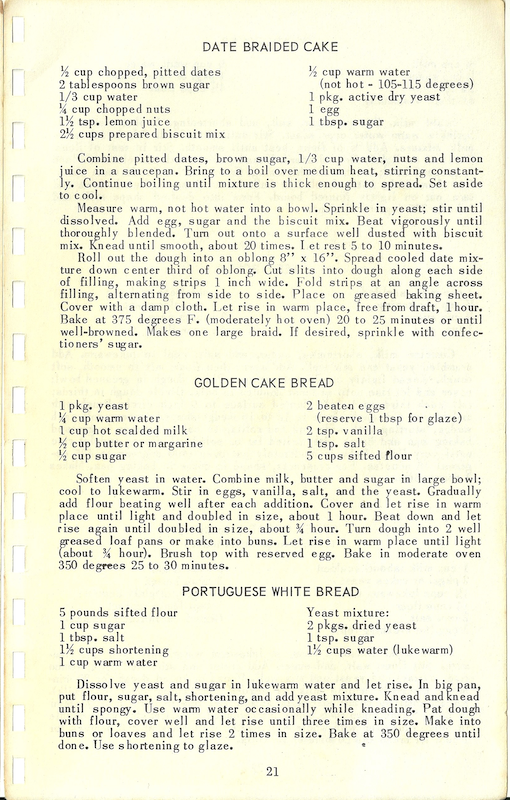 DATE BRAIDED CAKE
½ cup chopped, pitted dates
2 tablespoons brown sugar
1/3 cup water
¼ cup chopped nuts
1½ tsp. lemon juice
2½ cups prepared biscuit mix
½ cup warm water
(not hot - 105-115 degrees)
1 pkg. active dry yeast
1 egg
1 tbsp. sugar
Combine pitted dates, brown sugar, 1/3 cup water, nuts and lemon
juice in a saucepan. Bring to a boil over medium heat, stirring constant-
ly. Continue boiling until mixture is thick enough to spread. Set aside
to cool.
Measure warm, not hot water into a bowl. Sprinkle in yeast; stir until
dissolved. Add egg, sugar and the biscuit mix. Beat vigorously until
thoroughly blended. Turn out onto a surface well dusted with biscuit
mix. Knead until smooth, about 20 times. Let rest 5 to 10 minutes.
Roll out the dough into an oblong 8" x 16". Spread cooled date mix-
ture down center third of oblong. Cut slits into dough along each side
of filling, making strips 1 inch wide. Fold strips at an angle across
filling, alternating from side to side. Place on greased baking sheet.
Cover with a damp cloth. Let rise in warm place, free from draft, 1 hour.
Bake at 375 degrees F. (moderately hot oven) 20 to 25 minutes or until
well-browned. Makes one large braid. If desired, sprinkle with confec-
tioners' sugar.
GOLDEN CAKE BREAD
1 pkg. yeast
¼ cup warm water
1 cup hot scalded milk
½ cup butter or margarine
½ cup sugar
2 beaten eggs
(reserve 1 tbsp for glaze)
2 tsp. vanilla
1 tsp. salt
5 cups sifted flour
Soften yeast in water. Combine milk, butter and sugar in large bowl;
cool to lukewarm. Stir in eggs, vanilla, salt, and the yeast. Gradually
add flour beating well after each addition. Cover and let rise in warm
place until light and doubled in size, about 1 hour. Beat down and let
rise again until doubled in size, about ¾ hour. Turn dough into 2 well
greased loaf pans or make into buns. Let rise in warm place until light
(about ¾ hour). Brush top with reserved egg. Bake in moderate oven
350 degrees 25 to 30 minutes.
PORTUGUESE WHITE BREAD
5 pounds sifted flour
1 cup sugar
1 tbsp. salt
1½ cups shortening
1 cup warm water
Yeast mixture:
2 pkgs. dried yeast
1 tsp. sugar
1½ cups water (lukewarm)
Dissolve yeast and sugar in lukewarm water and let rise. In big pan,
put flour, sugar, salt, shortening, and add yeast mixture. Knead and knead
until spongy. Use warm water occasionally while kneading. Pat dough
with flour, cover well and let rise until three times in size. Make into
buns or loaves and let rise 2 times in size. Bake at 350 degrees until
done. Use shortening to glaze.
21